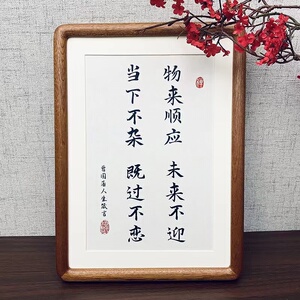 物来顺应 未来不迎
当下不杂 既过不恋
曾国藩人生箴言